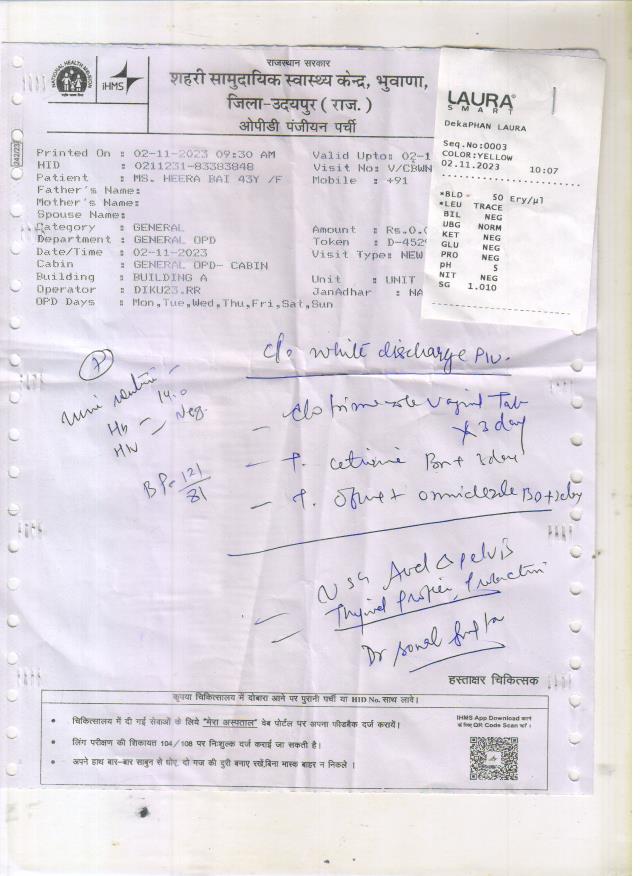 राजस्थान सरकार
शहरी सामुदायिक स्वास्थ्य केन्द्र, भुवाणा,
जिला-उदयपुर ( राज. )
ओपीडी पंजीयन पर्ची
NATIONAL HEALTH MISSION
iHMS
242/23
Printed On : 02-11-2023 09:30 AM Valid Upto: 02-1
HID : 0211231-83383848 Visit No: V/CBWN
Patient : MS. HEERA BAI 43Y /F Mobile : +91
Father's Name:
Mother's Name:
Spouse Name:
Category : GENERAL Amount : Rs.0.0
Department : GENERAL OPD Token : D-4529
Date/Time : 02-11-2023 Visit Type: NEW
Cabin : GENERAL OPD- CABIN
Building : BUILDING A Unit : UNIT
Operator : DIKU23.RR JanAdhar : NA
OPD Days : Mon,Tue,Wed,Thu,Fri,Sat,Sun
LAURA
SMART
DekaPHAN LAURA
Seq.No:0003
COLOR:YELLOW
02.11.2023 10:07
*BLD 50 Ery/µl
*LEU TRACE
BIL NEG
UBG NORM
KET NEG
GLU NEG
PRO NEG
pH 5
NIT NEG
SG 1.010
c/o white discharge P/V.
Hb - 14.0
HIV - Neg.
BP - 121/81
Vaginal Tab
x 3 day
- T. cetrizine 3 day
- T.
- USG Abd & pelvis
- Thyroid Profile, Prolactin
Dr Sonal Gupta
हस्ताक्षर चिकित्सक
कृपया चिकित्सालय में दोबारा आने पर पुरानी पर्ची या HID No. साथ लावे।
• चिकित्सालय में दी गई सेवाओं के लिये "मेरा अस्पताल" वेब पोर्टल पर अपना फीडबैक दर्ज करायें।
• लिंग परीक्षण की शिकायत 104/108 पर निःशुल्क दर्ज कराई जा सकती है।
• अपने हाथ बार-बार साबुन से धोए, दो गज की दुरी बनाए रखें,बिना मास्क बाहर न निकले ।
IHMS App Download करने
के लिए QR Code Scan करें ।